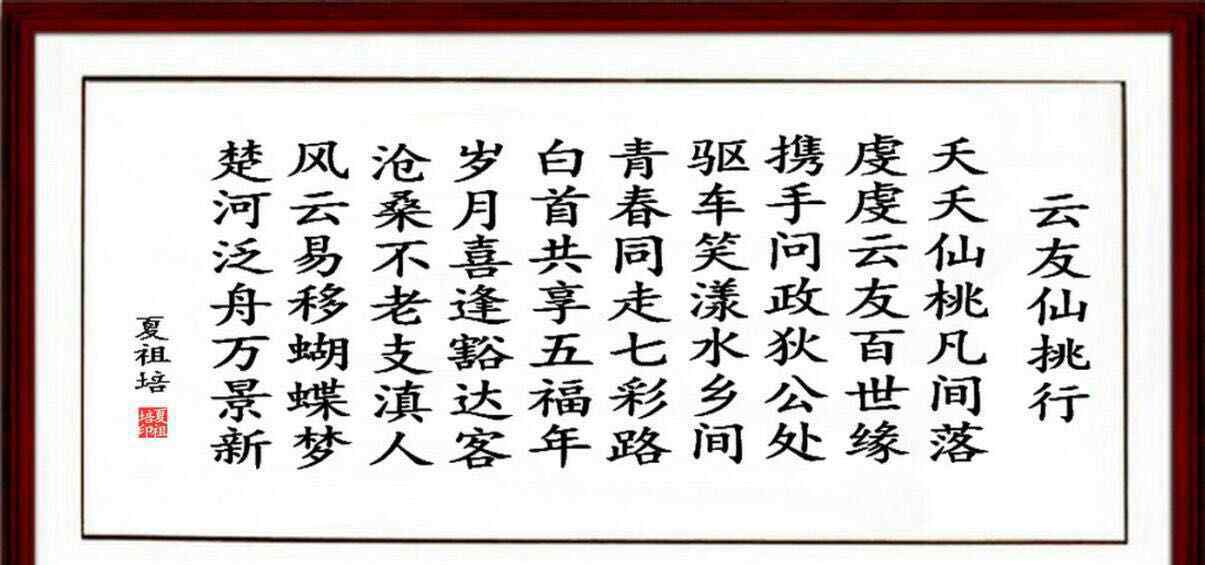 云友仙挑行
夭夭仙桃凡间落
虔虔云友百世缘
携手问政狄公处
驱车笑漾水乡间
青春同走七彩路
白首共享五福年
岁月喜逢豁达客
沧桑不老支滇人
风云易移蝴蝶梦
楚河泛舟万景新
夏祖培
夏祖培印